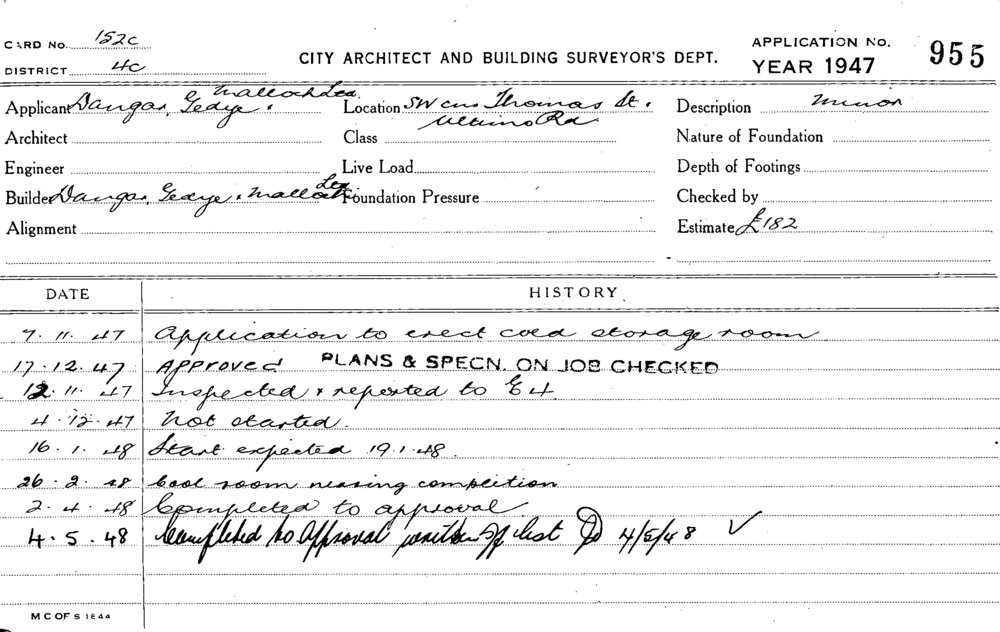 CARD No. 152c
DISTRICT 4C
CITY ARCHITECT AND BUILDING SURVEYOR'S DEPT.
APPLICATION No. 955
YEAR 1947
Applicant Dangar, Gedye & Malloch Ltd.
Location SW cnr Thomas St. Ultimo Rd.
Description Minor
Architect
Class
Nature of Foundation
Engineer
Live Load
Depth of Footings
Builder Dangar, Gedye & Malloch Ltd
Foundation Pressure
Checked by
Alignment
Estimate £182
DATE HISTORY
7.11.47 Application to erect cold storage room
17.12.47 Approved PLANS & SPECN. ON JOB CHECKED
12.11.47 Inspected & reported to E4.
4.12.47 Not started.
16.1.48 Start expected 19.1.48.
26.2.48 Cool room nearing completion
2.4.48 Completed to approval
4.5.48 Completed to Approval written off list 4/5/48 ✓
M C OF S 1844